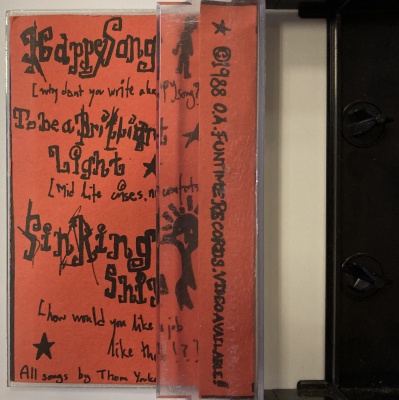 Happy Song
[why dont you write a happy song?
To be a Brilliant
Light
[Mid Life crises,
Sinking
Ship
[how would you like a job
like this!?]
All songs by Thom Yorke
©1988 O.A. FUNTIME RECORDS. VIDEO AVAILABLE!!